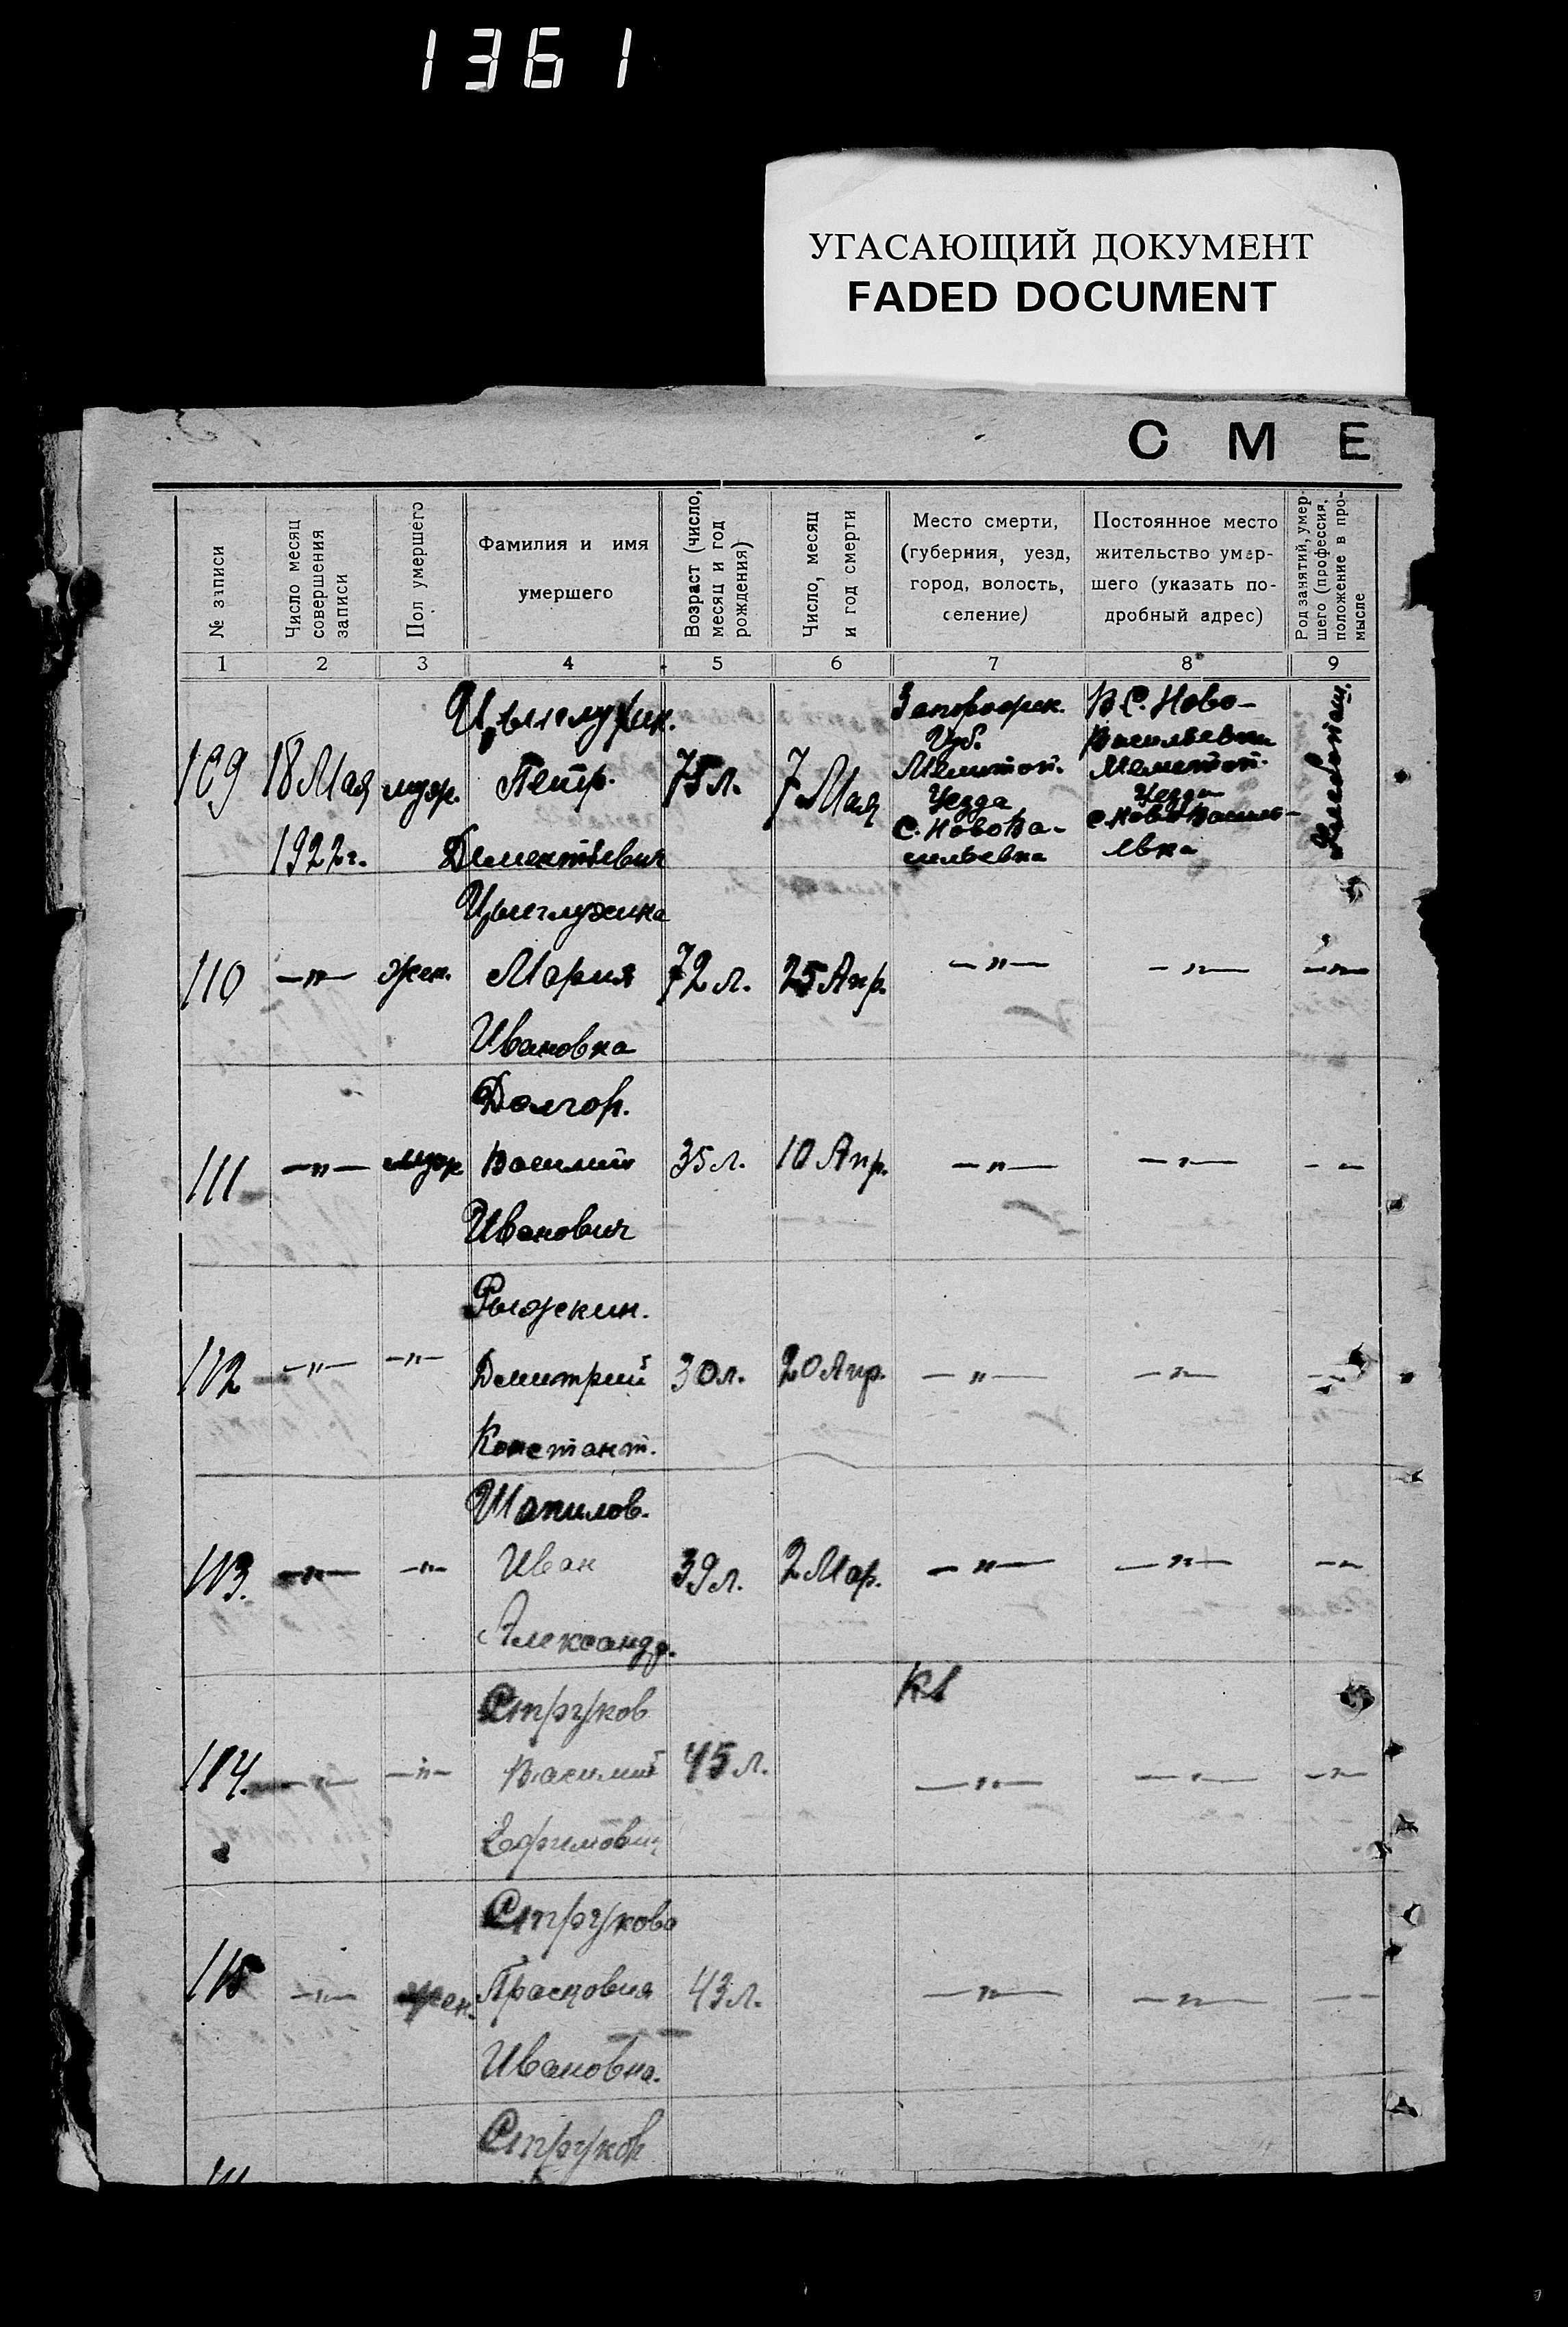 1361
УГАСАЮЩИЙ ДОКУМЕНТ
FADED DOCUMENT
С М Е
№ записи
Число месяц
совершения
записи
Пол умершего
Фамилия и имя
умершего
Возраст (число,
месяц и год
рождения)
Число, месяц
и год смерти
Место смерти,
(губерния, уезд,
город, волость,
селение)
Постоянное место
жительство умер-
шего (указать по-
дробный адрес)
Род занятий, умер-
шего (профессия,
положение в про-
мысле
1 2 3 4 5 6 7 8 9
109
18 Мая
1922 г.
муж.
Петр.
Дементьевич
75 л.
7 Мая
Запорожск.
Губ.
Мелитоп.
Уезда
С. НовоВа-
сильевка
В С. Ново-
Васильевки
Мелитоп.
Уезда
с. НовоВасиль-
евка
Хлебопаш.
110
—"—
жен.
Мария
Ивановна
72 л.
25 Апр.
—"—
—"—
—"—
Долгор.
111
—"—
муж
Василий
Иванович
35 л.
10 Апр.
—"—
—"—
—"—
Рыжкин.
112
—"—
—"—
Дмитрий
Констант.
30 л.
20 Апр.
—"—
—"—
—"—
Шапилов.
113.
—"—
—"—
Иван
Александр.
39 л.
2 Мар.
—"—
—"—
—"—
Струков
114.
—"—
—"—
Василий
Ефимович
45 л.
—"—
—"—
—"—
Струкова
115
—"—
жен.
Прасковия
Ивановна.
43 л.
—"—
—"—
—"—
Струков